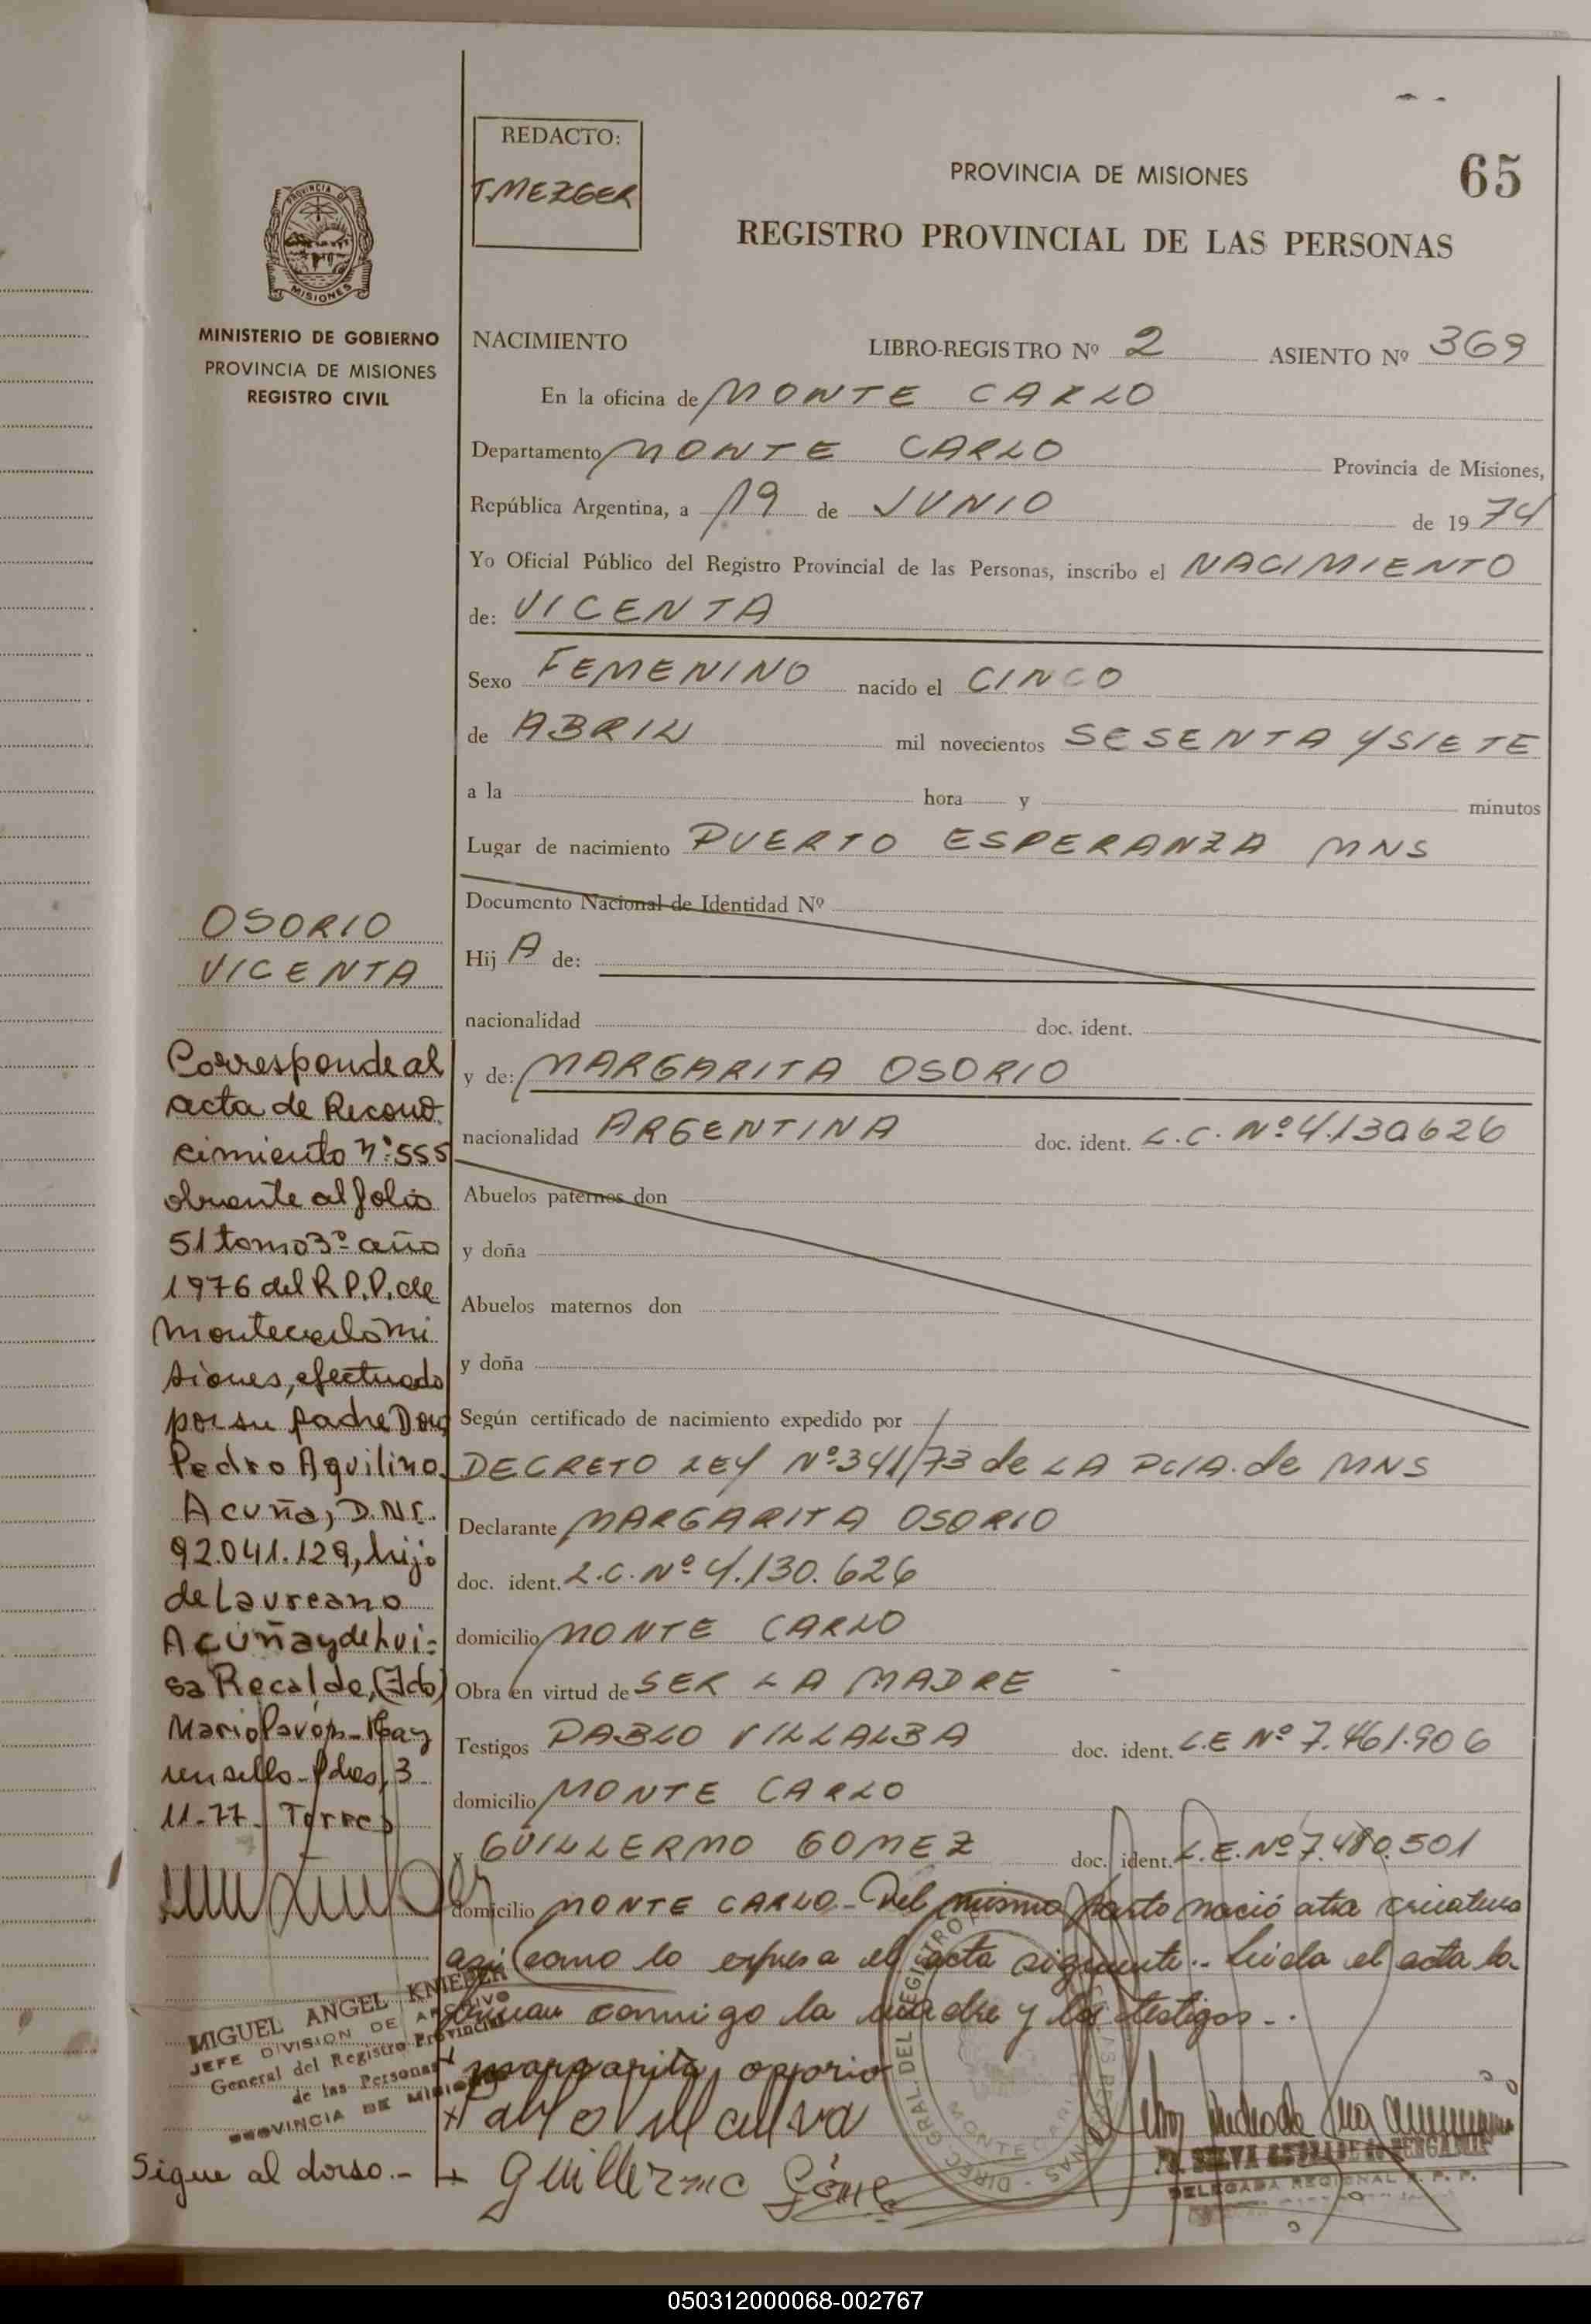 REDACTO:
T. MEZGER
PROVINCIA DE MISIONES
65
REGISTRO PROVINCIAL DE LAS PERSONAS
PROVINCIA DE
MISIONES
MINISTERIO DE GOBIERNO
PROVINCIA DE MISIONES
REGISTRO CIVIL
NACIMIENTO LIBRO-REGISTRO Nº 2 ASIENTO Nº 369
En la oficina de MONTE CARLO
Departamento MONTE CARLO Provincia de Misiones,
República Argentina, a 19 de JUNIO de 1974
Yo Oficial Público del Registro Provincial de las Personas, inscribo el NACIMIENTO
de: VICENTA
Sexo FEMENINO nacido el CINCO
de ABRIL mil novecientos SESENTA Y SIETE
a la hora y minutos
Lugar de nacimiento PUERTO ESPERANZA MNS
Documento Nacional de Identidad Nº
Hij A de:
nacionalidad doc. ident.
y de: MARGARITA OSORIO
nacionalidad ARGENTINA doc. ident. L.C. Nº 4.130626
Abuelos paternos don
y doña
Abuelos maternos don
y doña
Según certificado de nacimiento expedido por /
DECRETO LEY Nº 341/73 de LA PCIA. de MNS
Declarante MARGARITA OSORIO
doc. ident. L.C. Nº 4.130.626
domicilio MONTE CARLO
Obra en virtud de SER LA MADRE
Testigos PABLO VILLALBA doc. ident. L.E Nº 7.461.906
domicilio MONTE CARLO
y GUILLERMO GOMEZ doc. ident. L.E. Nº 7.480.501
domicilio MONTE CARLO - Del mismo parto nació otra criatura
así como lo expresa el acta siguiente.- Leída el acta la
firman conmigo la madre y los testigos -.
+ margarita ossorio
+ Pablo
+ Guillermo Gómez
OSORIO
VICENTA
Corresponde al
acta de Recono
cimiento nº 555
obrante al folio
51 tomo 3º año
1976 del R.P.P. de
Montecarlo Mi
siones, efectuado
por su padre Don
Pedro Aquilino
Acuña, D.N.I.
92.041.129, hijo
de Laureano
Acuña y de Lui=
sa Recalde, (Fdo)
Mario Pavón - Hay
un sello - Pdas, 3
11-77 - Torres
MIGUEL ANGEL KNIEBER
JEFE DIVISION DE ARCHIVO
General del Registro Provincial
de las Personas
PROVINCIA DE MISIONES
Sigue al dorso.-
DIREC. GRAL. DEL REGISTRO
MONTECARLO
DELEGADA REGIONAL R. P. P.
050312000068-002767